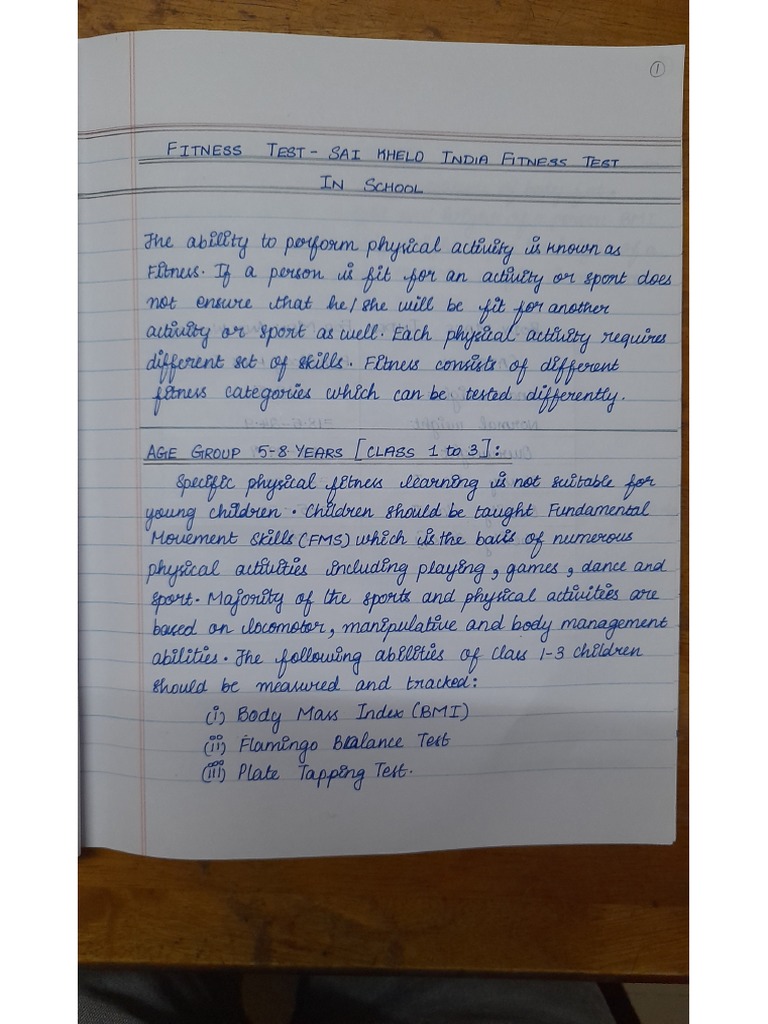 1
FITNESS TEST - SAI KHELO INDIA FITNESS TEST
IN SCHOOL
The ability to perform physical activity is known as
Fitness. If a person is fit for an activity or sport does
not ensure that he/she will be fit for another
activity or sport as well. Each physical activity requires
different set of skills. Fitness consists of different
fitness categories which can be tested differently.
AGE GROUP 5-8 YEARS [CLASS 1 to 3]:
Specific physical fitness learning is not suitable for
young children. Children should be taught Fundamental
Movement Skills (FMS) which is the basis of numerous
physical activities including playing, games, dance and
sport. Majority of the sports and physical activities are
based on locomotor, manipulative and body management
abilities. The following abilities of class 1-3 children
should be measured and tracked:
(i) Body Mass Index (BMI)
(ii) Flamingo Balance Test
(iii) Plate Tapping Test.